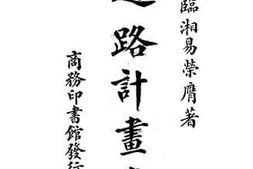 臨湘易榮膺著
路計畫
商務印書館發行